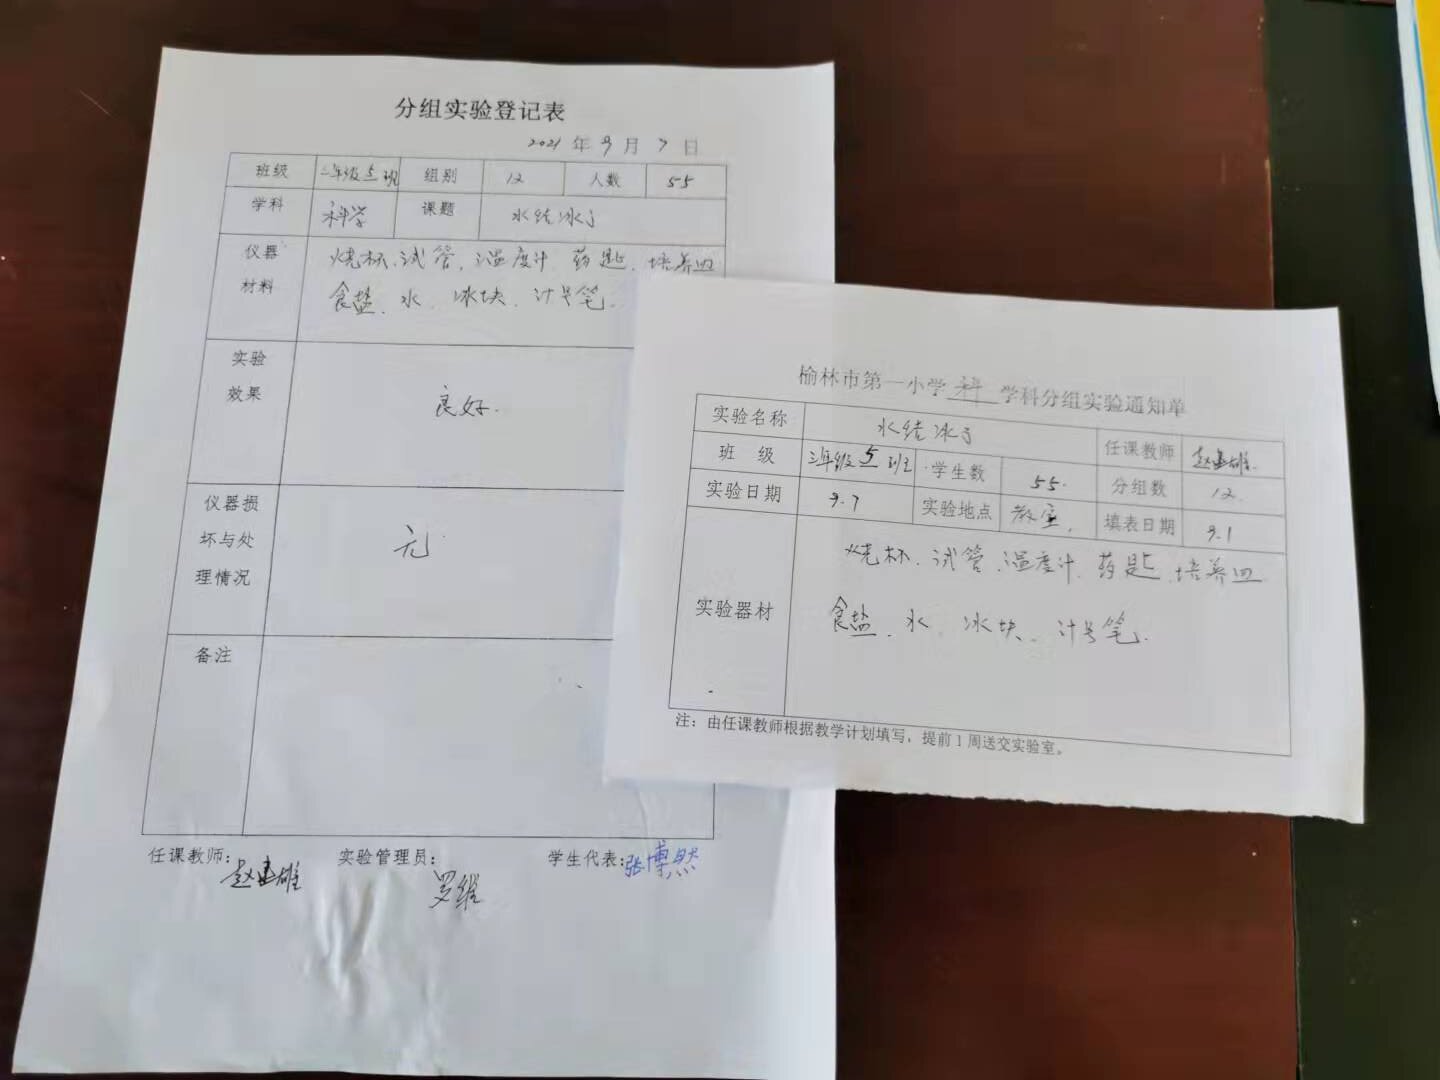 分组实验登记表
2021 年 9 月 7 日
班级 三年级5班 组别 12 人数 55
学科 科学 课题 水结冰了
仪器材料 烧杯、试管、温度计、药匙、培养皿
食盐、水、冰块、计号笔.
实验效果 良好.
仪器损坏与处理情况 无
备注
任课教师: 赵建雄 实验管理员: 罗维 学生代表: 张博然
榆林市第一小学 科 学科分组实验通知单
实验名称 水结冰了 任课教师 赵建雄
班 级 三年级5班 学生数 55. 分组数 12.
实验日期 9.7 实验地点 教室. 填表日期 9.1
实验器材 烧杯、试管、温度计、药匙、培养皿
食盐、水、冰块、计号笔.
注：由任课教师根据教学计划填写，提前1周送交实验室。